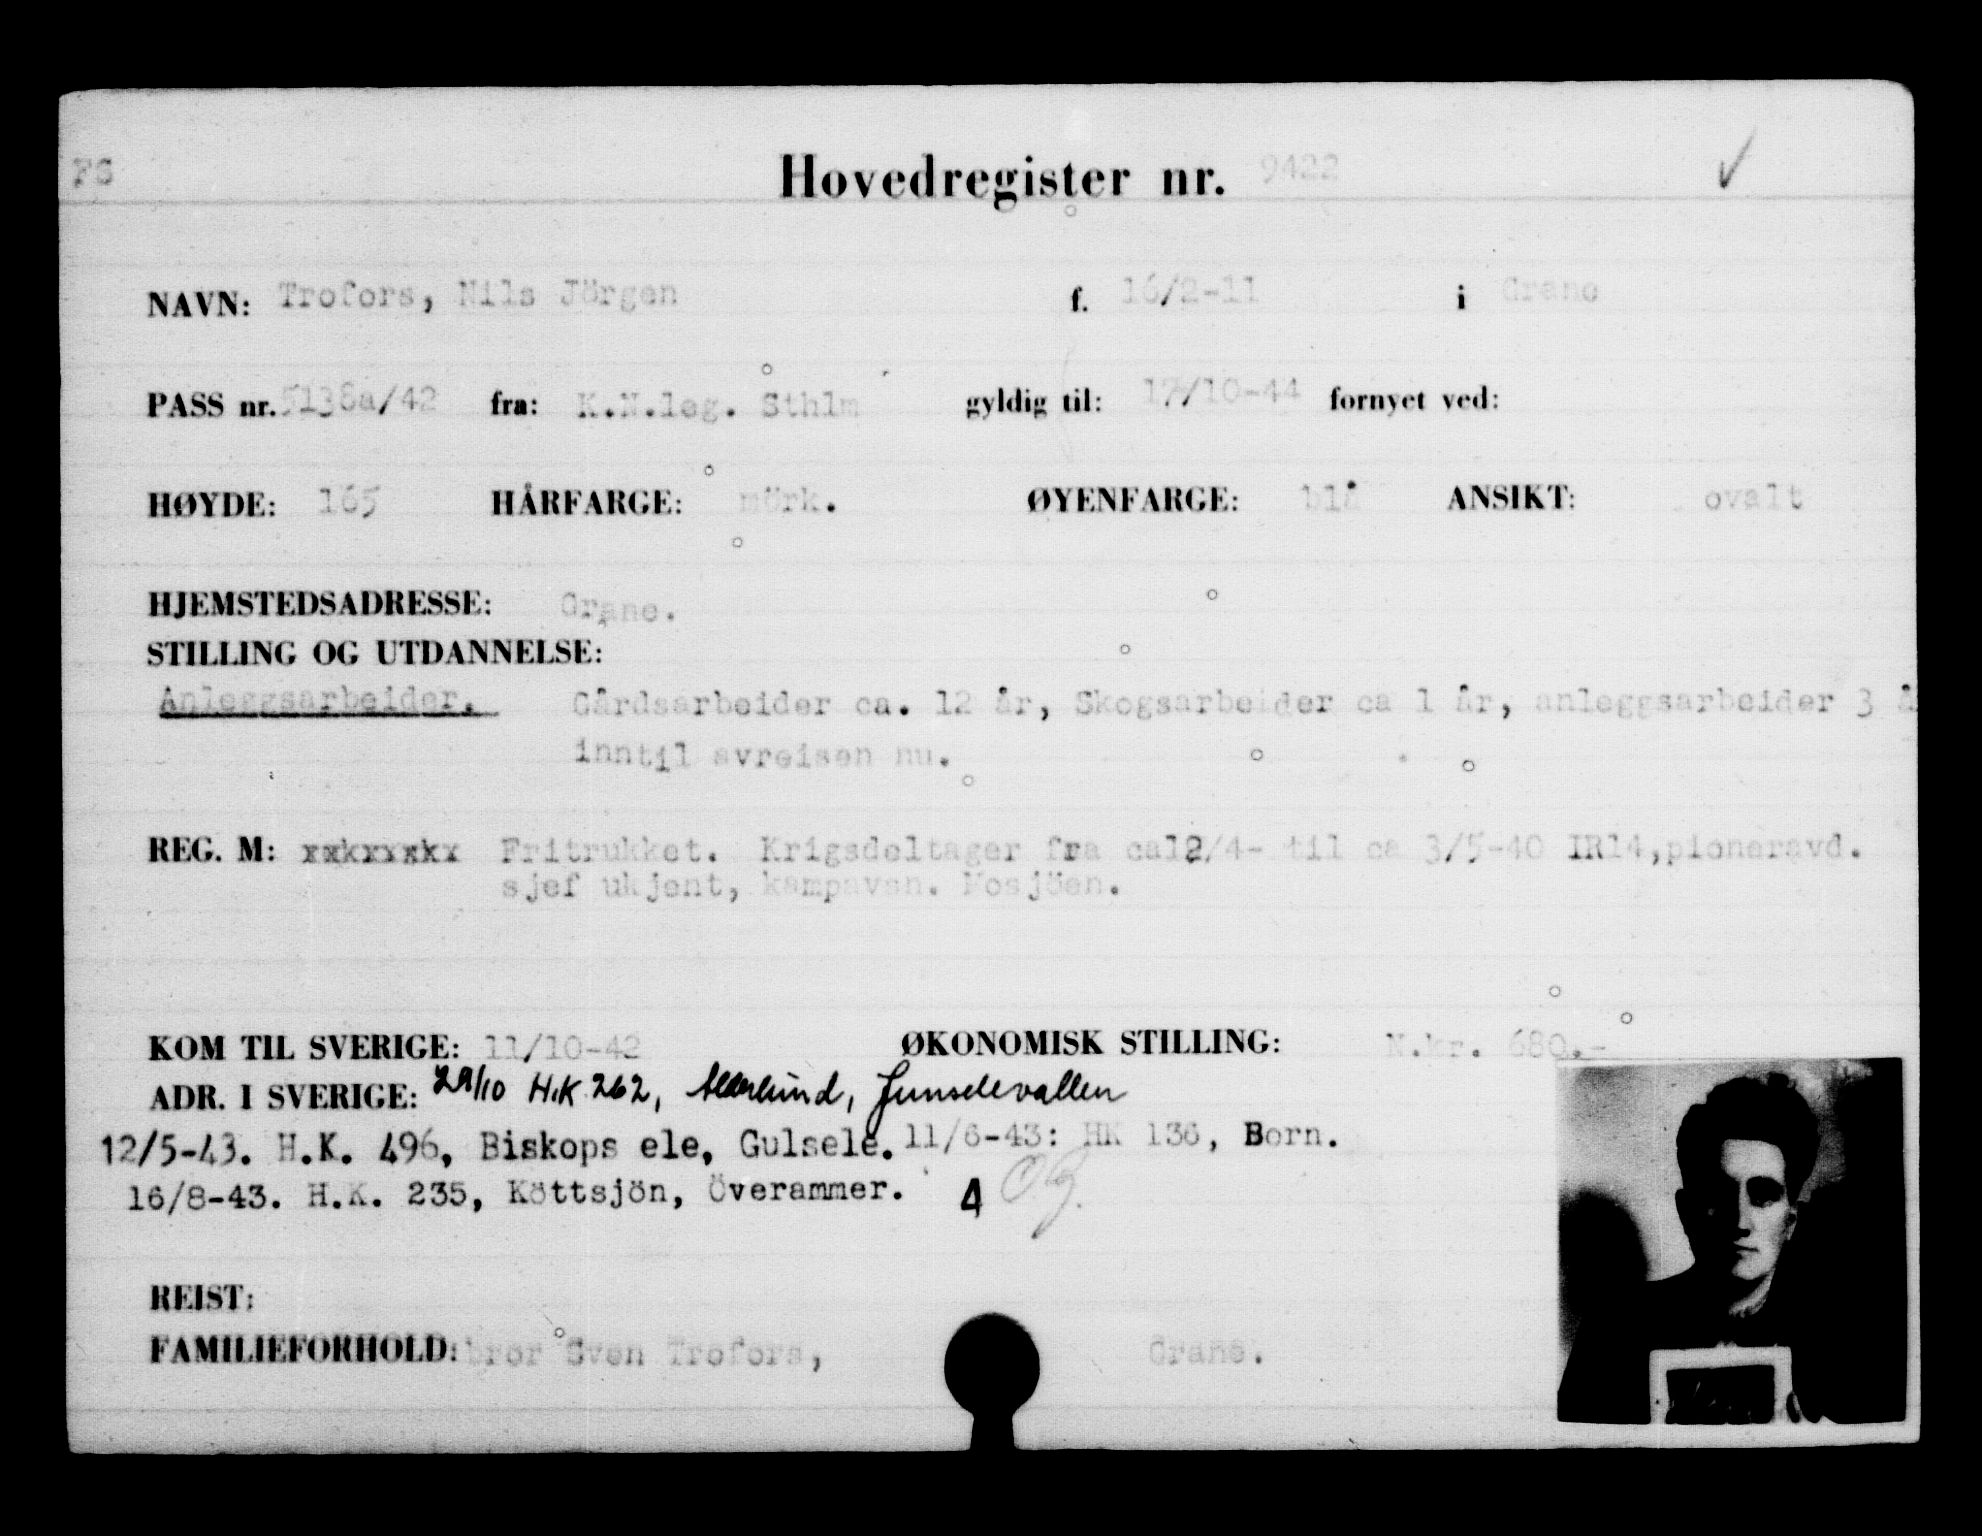 FS
Hovedregister nr. 9422
NAVN: Trofors, Nils Jörgen f. 16/2-11 i Grane
PASS nr. 5138a/42 fra: K.N.leg. Sthlm gyldig til: 17/10-44 fornyet ved:
HØYDE: 165 HÅRFARGE: mörk. ØYENFARGE: blå ANSIKT: ovalt
HJEMSTEDSADRESSE: Grane.
STILLING OG UTDANNELSE:
Anleggsarbeider. Gårdsarbeider ca. 12 år, Skogsarbeider ca 1 år, anleggsarbeider 3 å
inntil avreisen nu.
REG. M: xxkxxxkx Fritrukket. Krigsdeltager fra ca12/4- til ca 3/5-40 IR14,pioneravd.
sjef ukjent, kampavsn. Mosjöen.
KOM TIL SVERIGE: 11/10-42 ØKONOMISK STILLING: N.kr. 680.-
ADR. I SVERIGE: 29/10 H.K 262, Junselevallen
12/5-43. H.K. 496, Biskops ele, Gulsele. 11/6-43: HK 136, Born.
16/8-43. H.K. 235, Köttsjön, Överammer. 4
REIST:
FAMILIEFORHOLD: bror Sven Trofors, Grane.